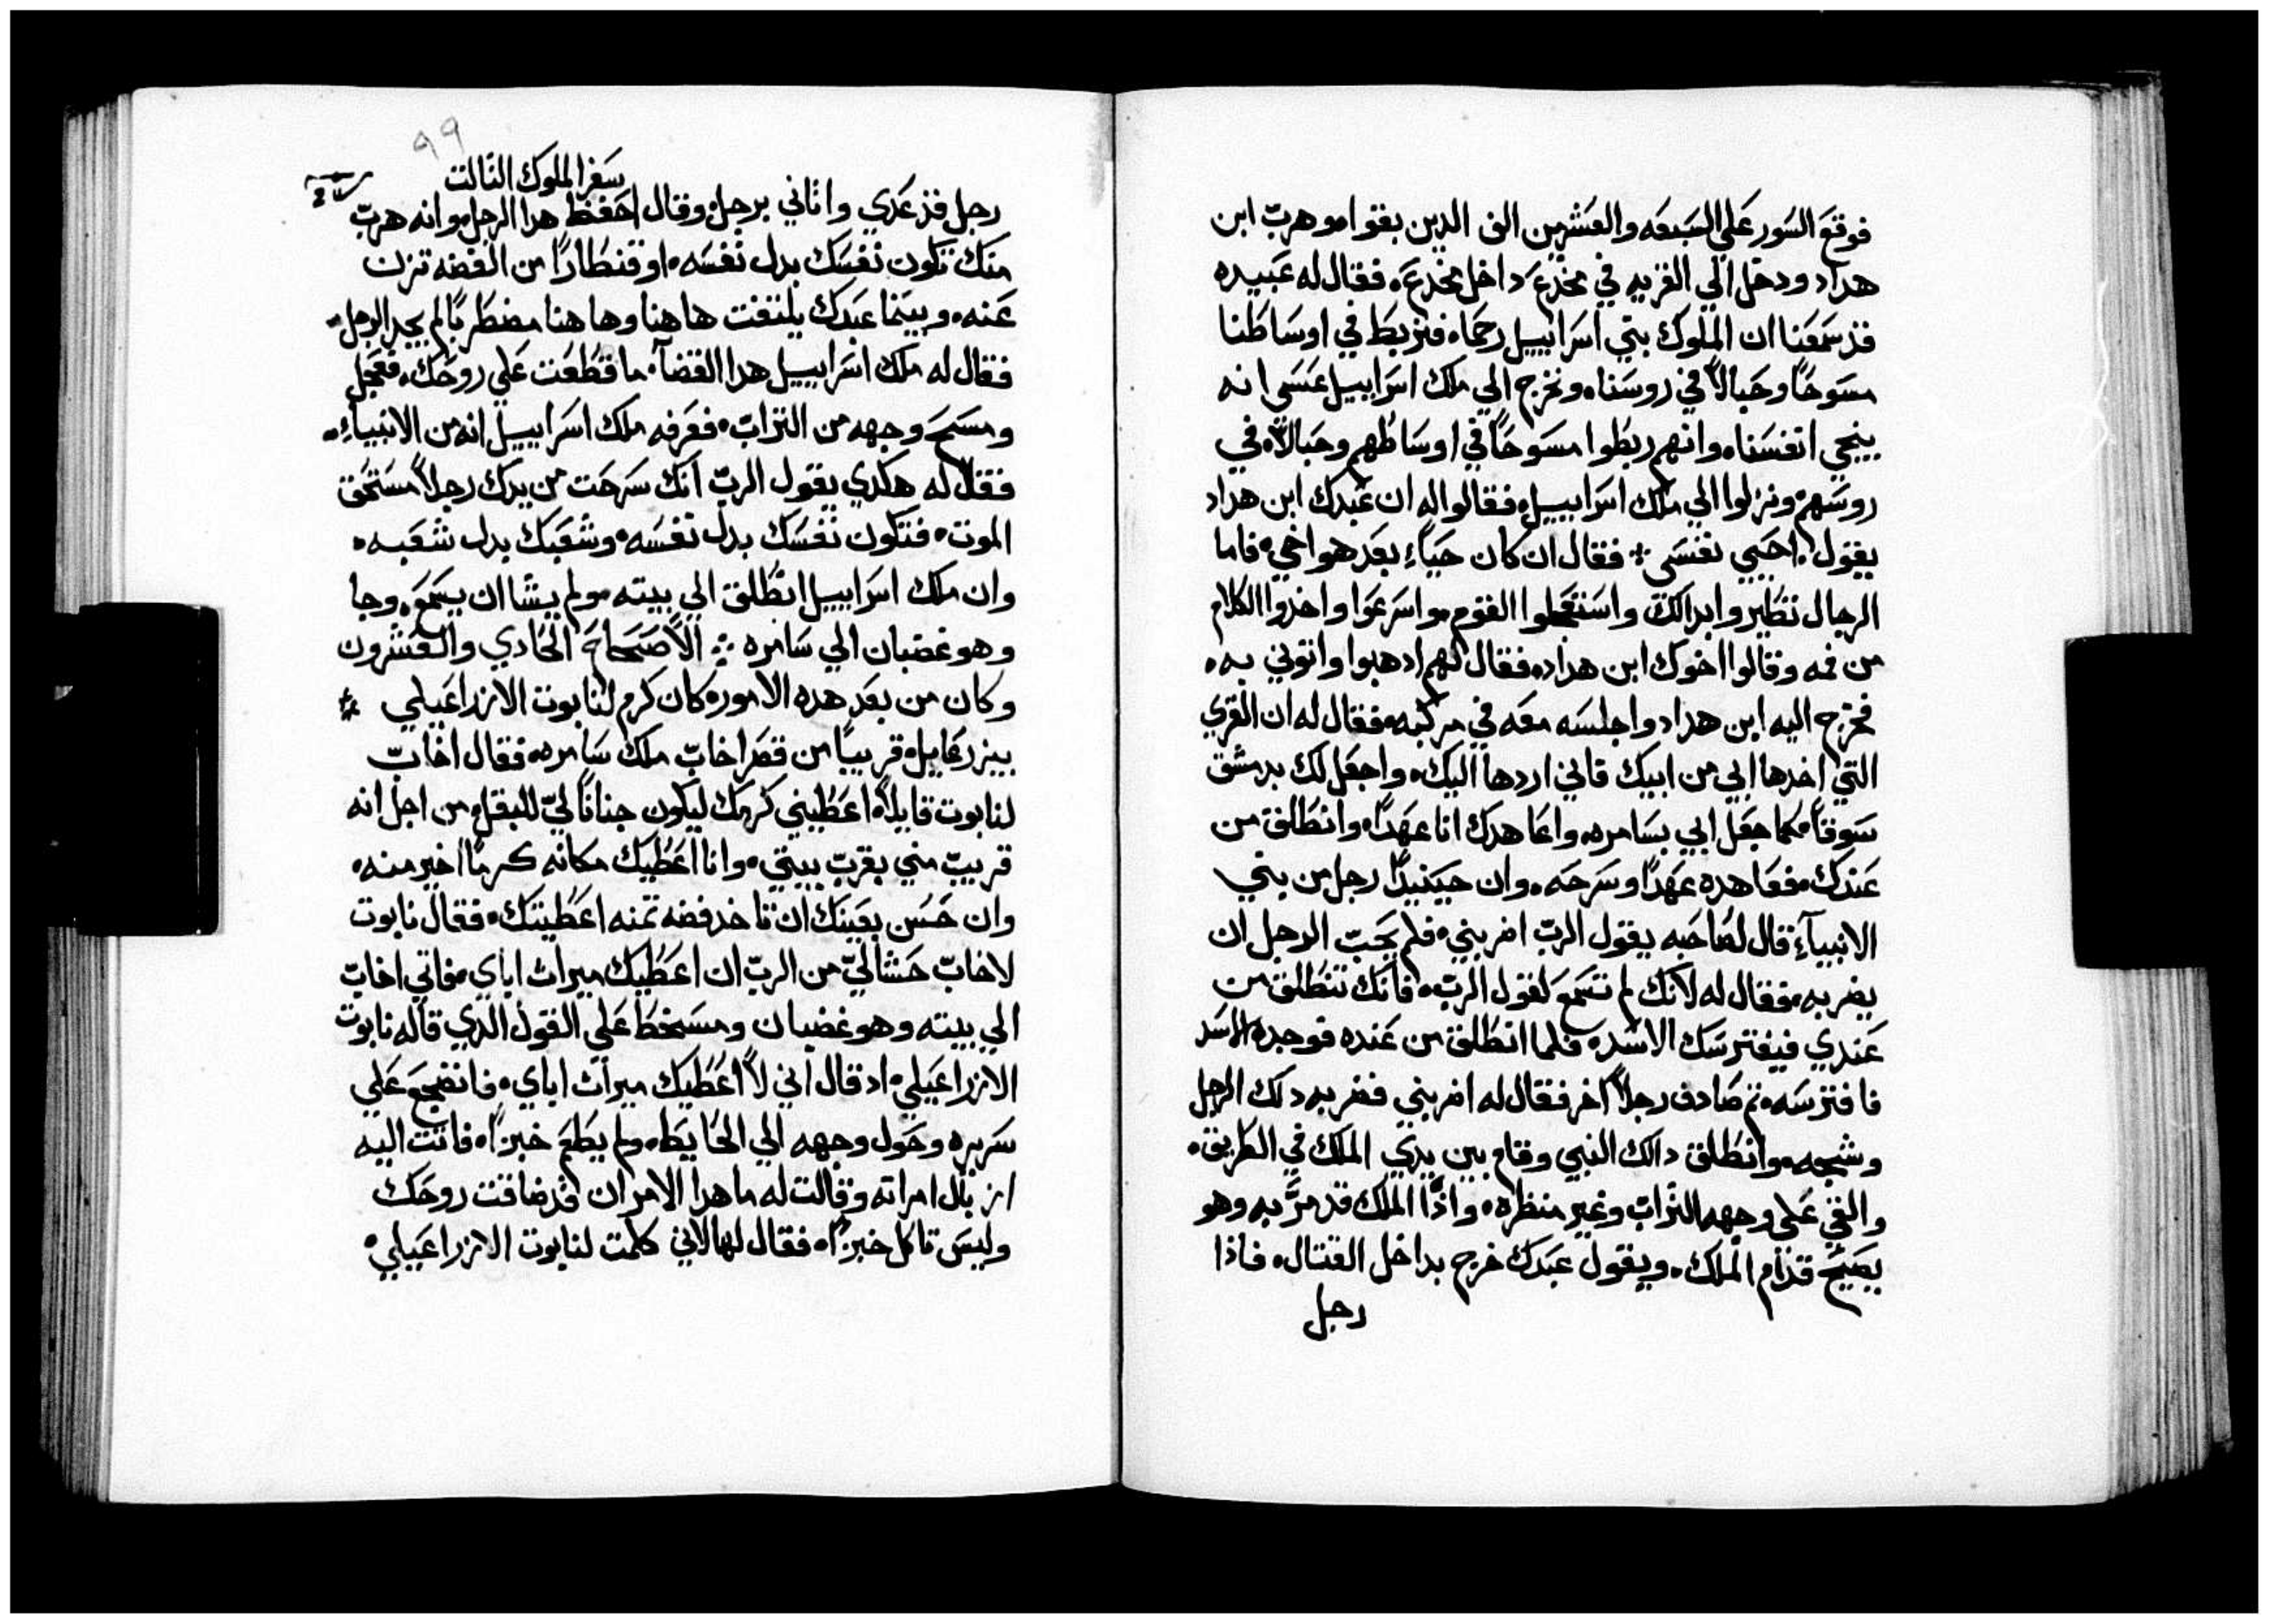 فوقع السور علي السبعه والعشرين الف الدين بقوا وهرب ابن
هداد ودخل الي القريه في مخدع داخل مخدع فقال له عبيده
قد سمعنا ان الملوك بني اسراييل رحماء فنربط في اوساطنا
مسوحًا وحبالاً في روسنا ونخرج الي ملك اسراييل عسى انه
ينجي انفسنا وانهم ربطوا مسوحًا في اوساطهم وحبالاً في
روسهم ونزلوا الي ملك اسراييل فقالوا له ان عبدك ابن هداد
يقول احيي نفسى فقال ان كان حياً بعد هو اخي فاما
الرجال تظيروا بدالك واستعجلوا القوم واسرعوا واخدوا الكلام
من فمه وقالوا اخوك ابن هداد فقال لهم ادهبوا واتوني به
فخرج اليه ابن هداد واجلسه معه في مركبه فقال له ان القري
التي اخدها ابي من ابيك فاني اردها اليك واجعل لك بدمشق
سوقاً كما جعل ابي بسامره واعاهدك انا عهداً وانطلق من
عندك فعاهده عهداً وسرحه وان حينيدًا رجل من بني
الانبيآء قال لصاحبه بقول الرب اضربني فلم يجب الرجل ان
يضربه فقال له لانك لم تسمع لقول الرب فانك تنطلق من
عندي فيفترسك الاسد فلما انطلق من عنده فوجده الاسد
فافترسه ثم صادف رجلاً اخر فقال له اضربني فضربه دلك الرجل
وشجه وانطلق دالك النبي وقام بين يدي الملك في الطريق
والقي علي وجهه التراب وغير منظره واذا الملك قد مر به وهو
يصيح قدام الملك ويقول عبدك خرج بداخل القتال فاذا
رجل
٩٩
سفر الملوك التالت
رجل قد عدي واتاني برجل وقال احفظ هدا الرجل وانه هرب
منك تكون نفسك بدل نفسه او قنطارًا من الفضه تزن
عنه وبينما عبدك يلتفت هاهنا وهاهنا مضطربًا لم يجد الرجل
فقال له ملك اسراييل هدا القضآ ما قطعت علي روحك فعجل
ومسح وجهه من التراب فعرفه ملك اسراييل انه من الانبيآء
فقال له هكدي يقول الرب انك سرحت من يدك رجلاً مستحق
الموت فتكون نفسك بدل نفسه وشعبك بدل شعبه
وان ملك اسراييل انطلق الي بيته ولم يشا ان يسمع وجا
وهو غضبان الي سامره الاصحاح الحادي والعشرون
وكان من بعد هده الامور كان كرم لنابوت الازراعيلي
بيزرعايل قريبًا من قصر اخاب ملك سامره فقال اخاب
لنابوت قايلاً اعطيني كرمك ليكون جنانًا لي للبقل من اجل انه
قريب مني بقرب بيتي وانا اعطيك مكانه كرمًا اخير منه
وان حسن بعينك ان تاخد فضه تمنه اعطيتك فقال نابوت
لاخاب حشا لي من الرب ان اعطيك ميراث اباي فاتي اخاب
الي بيته وهو غضبان ومسخط علي القول الدي قاله نابوت
الازراعيلي اد قال اني لا اعطيك ميراث اباي فانضجع علي
سريره وحول وجهه الي الحايط ولم يطعم خبزاً فاتت اليه
ازبال امراته وقالت له ما هدا الامر ان قد ضاقت روحك
وليس تاكل خبزاً فقال لها لاني كلمت لنابوت الازراعيلي